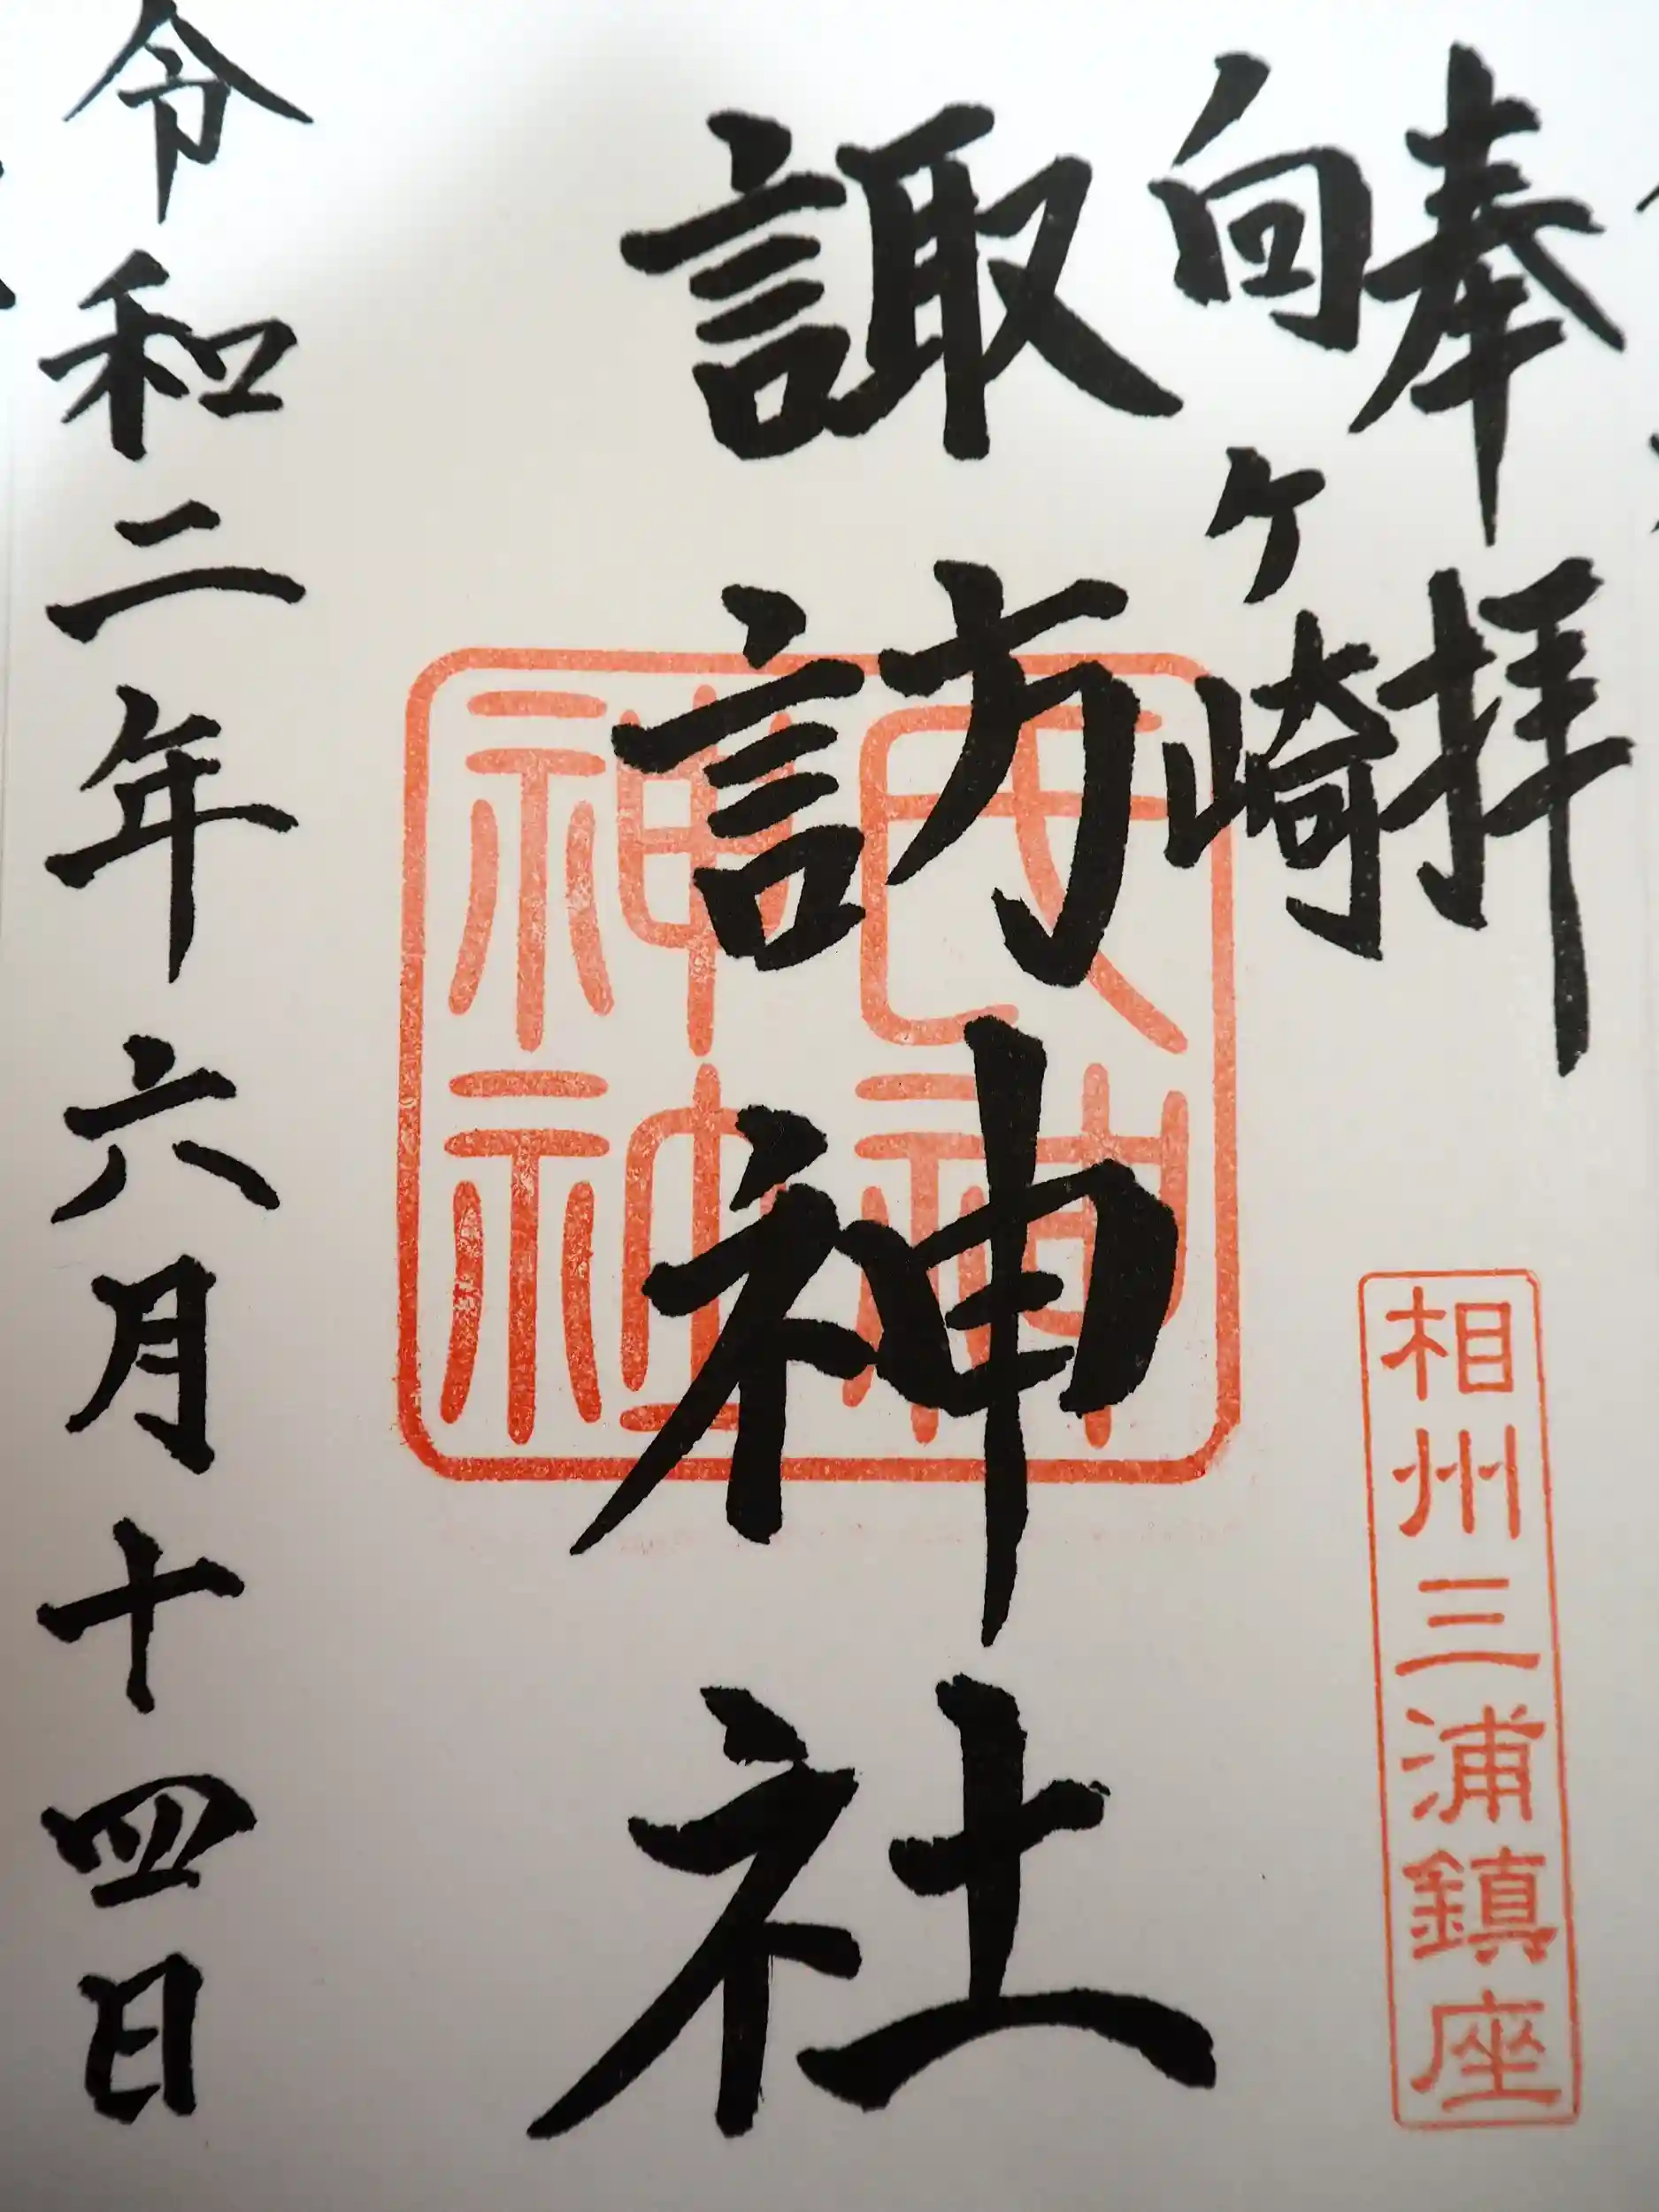 奉拝
相州三浦鎮座
向ヶ崎
諏訪神社
氏神神社
令和二年六月十四日